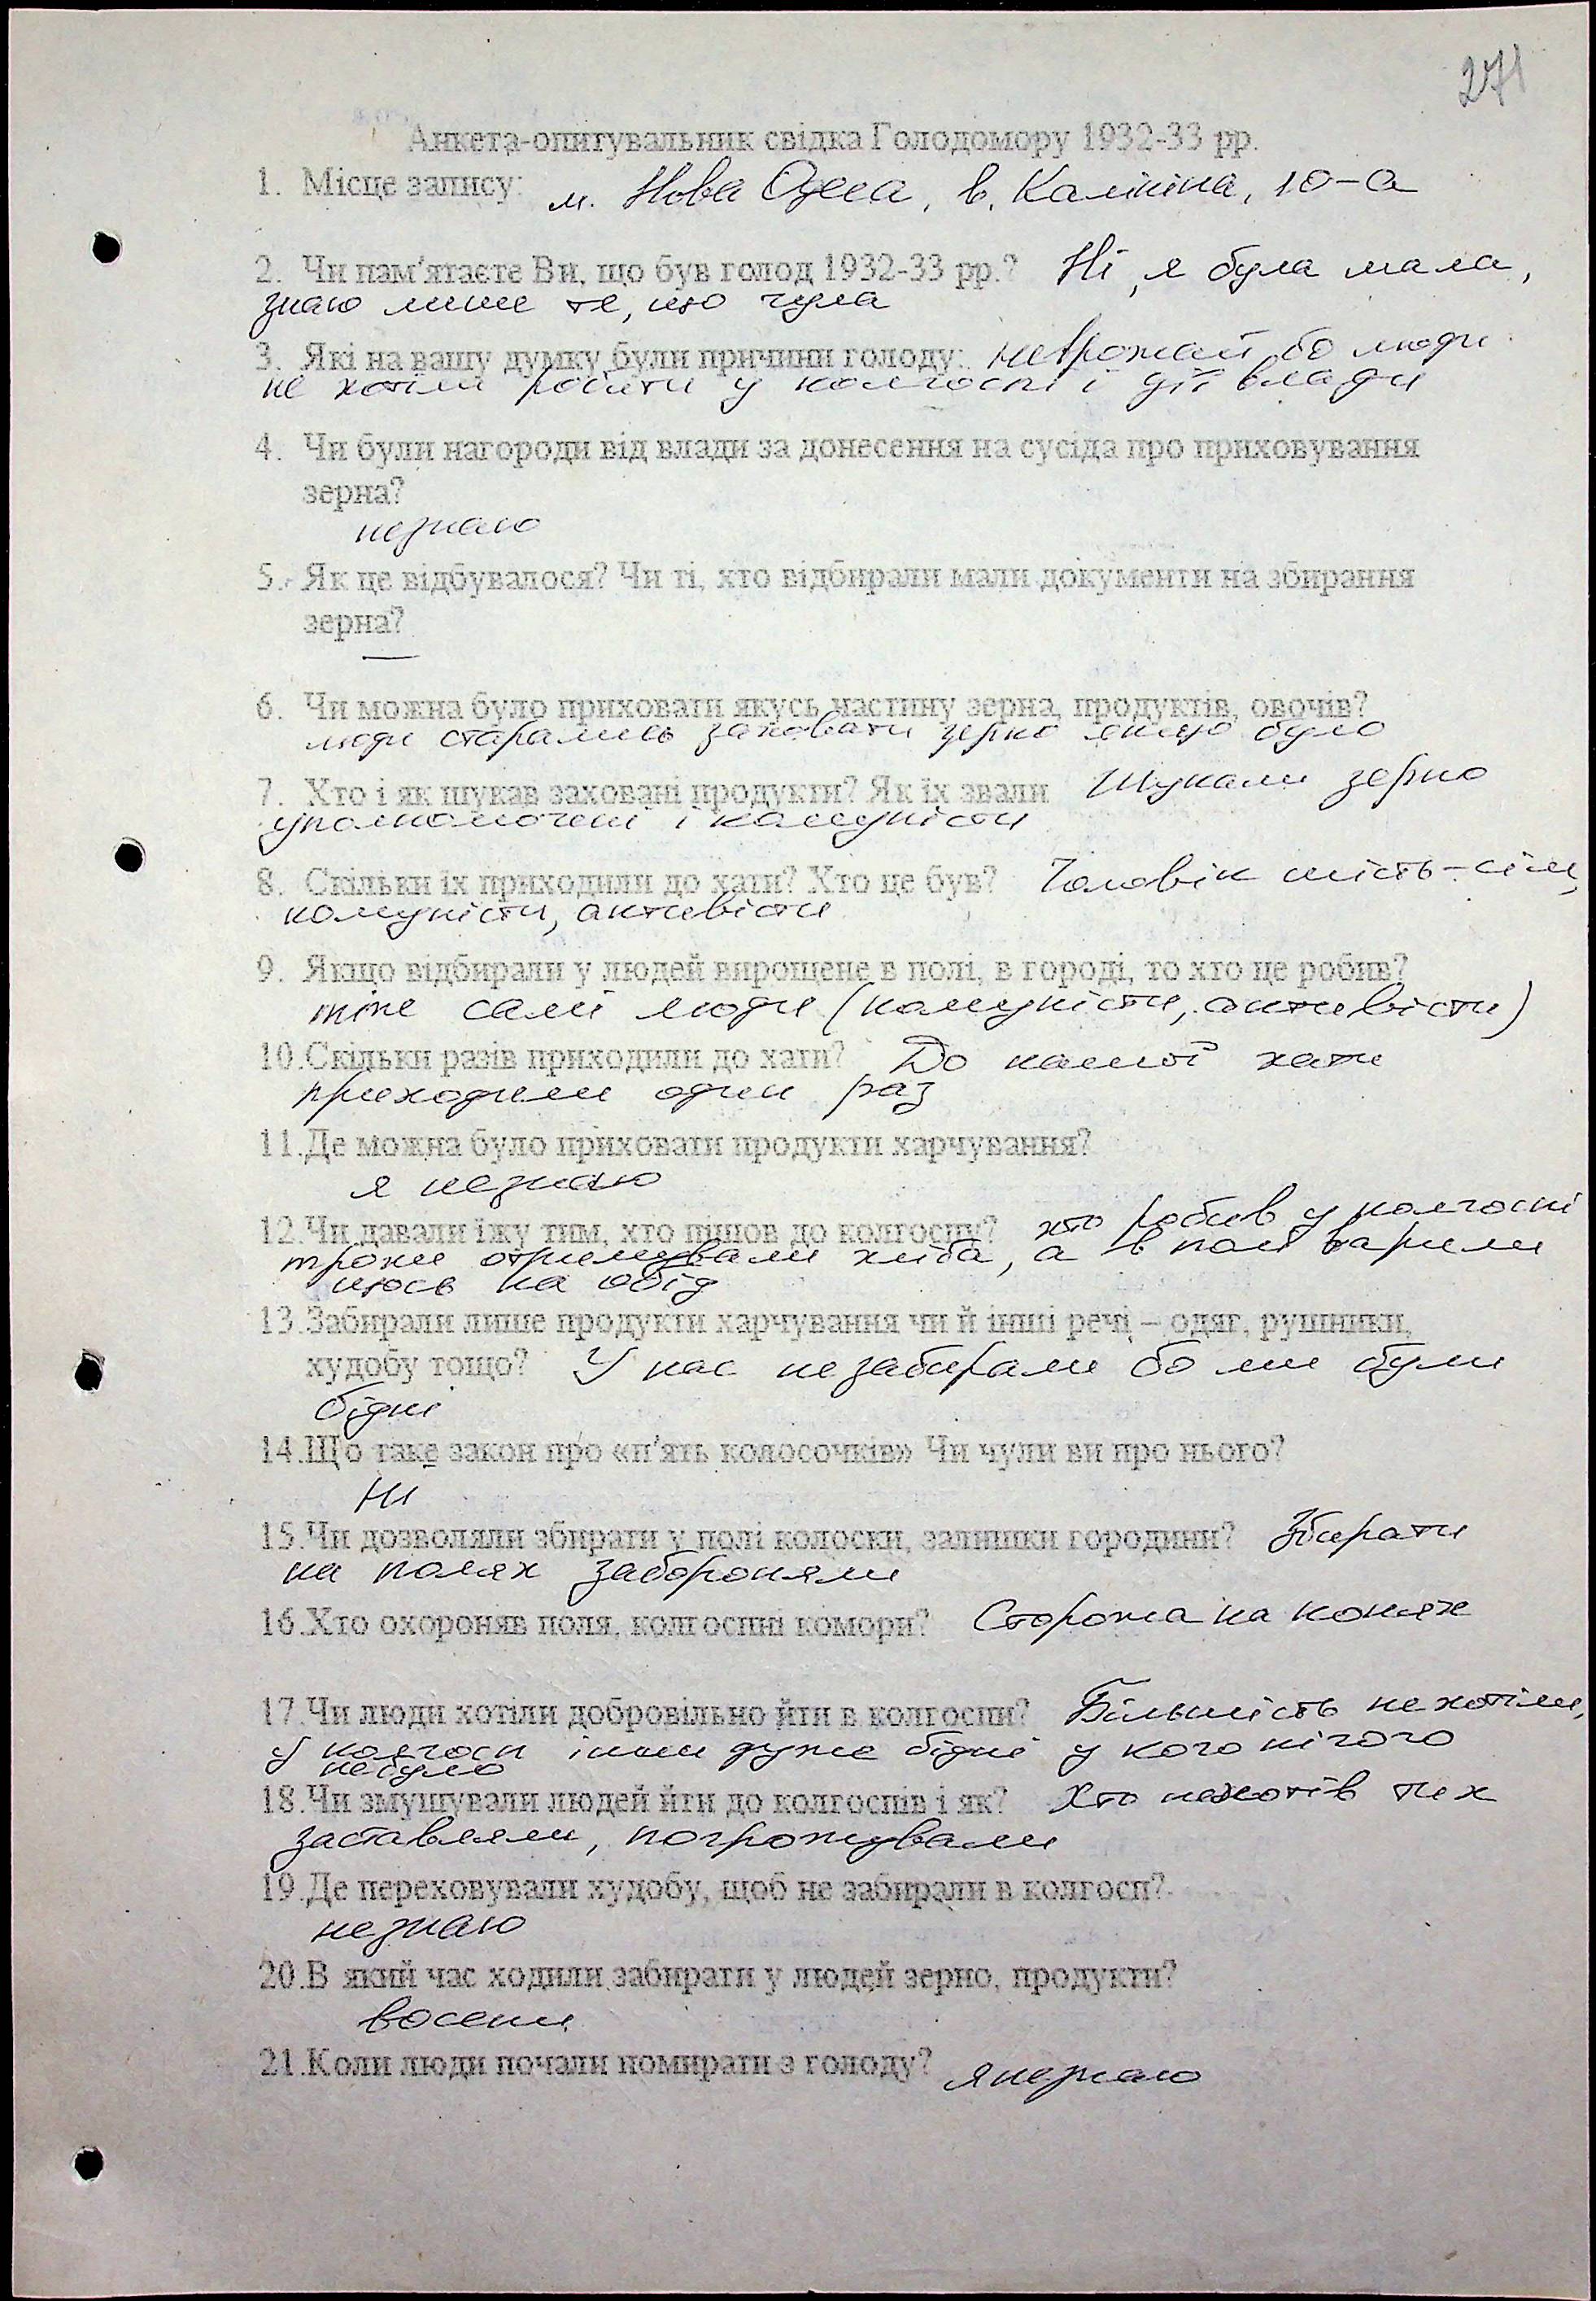 271
Анкета-опитувальник свідка Голодомору 1932-33 рр.
1. Місце запису: м. Нова Одеса, в. Калініна, 10-а
2. Чи пам'ятаєте Ви, що був голод 1932-33 рр.? Ні, я була мала,
знаю лише те, що чула
3. Які на вашу думку були причини голоду: неврожай бо люди
не хотіли робити у колгоспі і дії влади
4. Чи були нагороди від влади за донесення на сусіда про приховування
зерна?
незнаю
5. Як це відбувалося? Чи ті, хто відбирали мали документи на збирання
зерна?
—
6. Чи можна було приховати якусь частину зерна, продуктів, овочів?
люди старались заховати зерно якщо було
7. Хто і як шукав заховані продукти? Як їх звали Шукали зерно
уполномочені і комуністи
8. Скільки їх приходили до хати? Хто це був? Чоловік шість-сім,
комуністи, активісти
9. Якщо відбирали у людей вирощене в полі, в городі, то хто це робив?
тіже самі люди (комуністи, активісти)
10.Скільки разів приходили до хати? До нашої хати
приходили один раз
11.Де можна було приховати продукти харчування?
я незнаю
12.Чи давали їжу тим, хто пішов до колгоспу? хто робив у колгоспі
трохи отримували хліба, а в полі варили
щось на обід
13.Забирали лише продукти харчування чи й інші речі – одяг, рушники,
худобу тощо? У нас незабирали бо ми були
бідні
14.Що таке закон про «п'ять колосочків» Чи чули ви про нього?
Ні
15.Чи дозволяли збирати у полі колоски, залишки городини? Збирати
на полях забороняли
16.Хто охороняв поля, колгоспні комори? Сторожа на конях
17.Чи люди хотіли добровільно йти в колгоспи? Більшість нехотіли,
у колгосп ішли дуже бідні у кого нічого
небуло
18.Чи змушували людей йти до колгоспів і як? Хто нехотів тих
заставляли, погрожували
19.Де переховували худобу, щоб не забирали в колгосп?
незнаю
20.В який час ходили забирати у людей зерно, продукти?
восени
21.Коли люди почали помирати з голоду? я незнаю